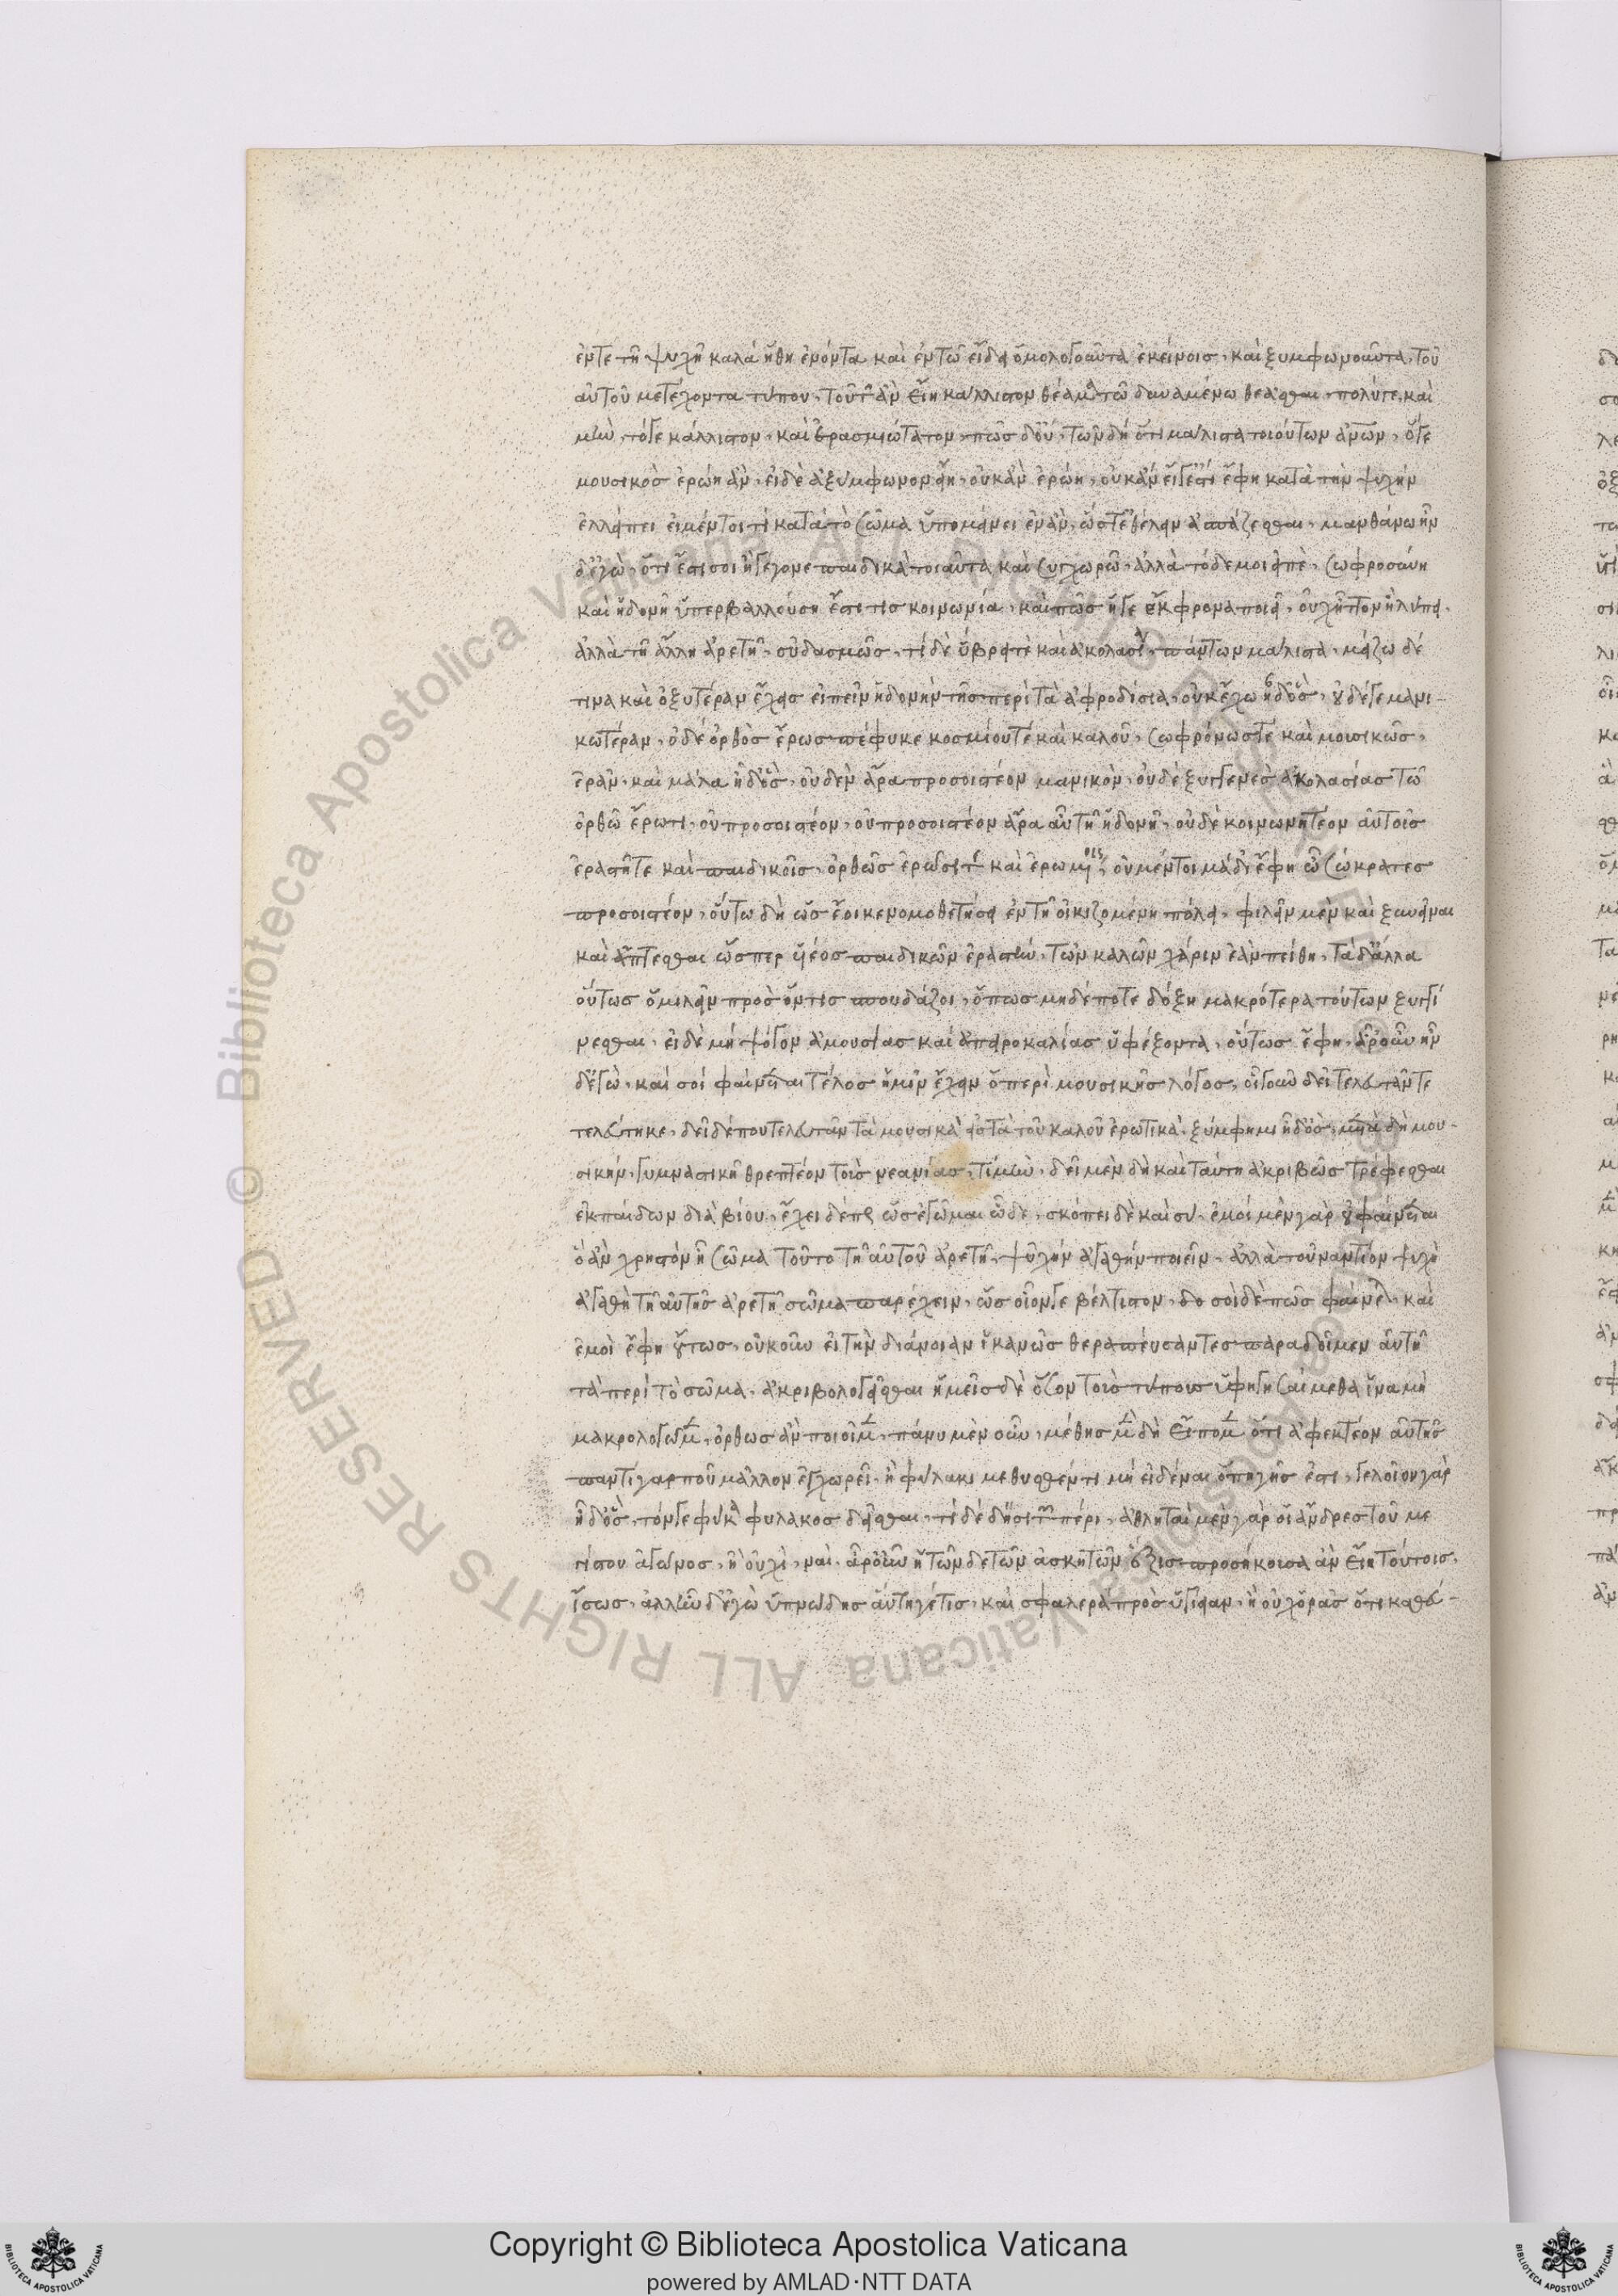 ἐν τε τῆ ψυχῆ καλὰ ἤθη ἐνόντα καὶ ἐν τῶ εἴδει ὁμολογοῦντα ἐκείνοις, καὶ ξυμφωνοῦντα, τοῦ
αὐτοῦ μετέχοντα τύπου, τοῦτ' ἂν εἴη κάλλιστον θέαμα τῶ δυναμένω θεᾶσθαι, πολύ γε, καὶ
μὴν, τόγε κάλλιστον, καὶ ἐρασμιώτατον, πῶς δ' οὔ, τῶν δὴ ὅτι μάλιστα τοιούτων ἀνων, ὅγε
μουσικὸς ἐρώη ἂν, εἰ δὲ ἀξύμφωνον εἴη, οὐκ ἂν ἐρώη, οὐκ ἂν εἴ γέ τι ἔφη κατὰ τὴν ψυχὴν
ἐλλείπει εἰ μέντοι τί κατὰ τὸ σῶμα ὑπομείνειεν ἂν, ὥστε ἐθέλειν ἀσπάζεσθαι, μανθάνω ἦν
δ' ἐγὼ, ὅτι ἔστι σοι ἢ γέγονε παιδικὰ τοιαῦτα καὶ συγχωρῶ, ἀλλὰ τόδε μοι εἰπὲ, σωφροσύνη
καὶ ἡδονῆ ὑπερβαλλούση ἔστι τις κοινωνία, καὶ πῶς ἥ γε ἔκφρονα ποιεῖ, οὐχ ἧττον ἢ λύπη.
ἀλλὰ τῆ ἄλλη ἀρετῆ, οὐδαμῶς, τί δὲ ὕβρει τὲ καὶ ἀκολασία, πάντων μάλιστα, μείζω δέ
τινα καὶ ὀξυτέραν ἔχεις εἰπεῖν ἡδονὴν τῆς περὶ τὰ ἀφροδίσια, οὐκ ἔχω ἦ δ' ὃς, οὐδέ γε μανι-
κωτέραν, ὁ δὲ ὀρθὸς ἔρως πέφυκε κοσμίου τὲ καὶ καλοῦ, σωφρόνως τὲ καὶ μουσικῶς,
ἐρᾶν, καὶ μάλα ἦ δ' ὃς, οὐδὲν ἄρα προσοιστέον μανικὸν, οὐδὲ ξυγγενὲς ἀκολασίας τῶ
ὀρθῶ ἔρωτι, οὐ προσοιστέον, οὐ προσοιστέον ἄρα αὐτὴ ἡδονὴ, οὐδὲ κοινωνητέον αὐτοῖς
ἐραστῆ τε καὶ παιδικοῖς, ὀρθῶς ἐρῶσί τε καὶ ἐρωμένοις, οὐ μέντοι μὰ δί ἔφη ὦ σώκρατες
προσοιστέον, οὕτω δὴ ὡς ἔοικε νομοθετήσεις ἐν τῆ οἰκιζομένη πόλει, φιλεῖν μὲν καὶ ξυνεῖναι
καὶ ἅπτεσθαι ὥσπερ υἱέος παιδικῶν ἐραστὴν, τῶν καλῶν χάριν ἐὰν πείθη, τὰ δ' ἄλλα
οὕτως ὁμιλεῖν πρὸς ὅν τις σπουδάζοι, ὅπως μηδέποτε δόξη μακρότερα τούτων ξυγγί
νεσθαι, εἰ δὲ μὴ ψόγον ἀμουσίας καὶ ἀπειροκαλίας ὑφέξοντα, οὕτως ἔφη, ἆρ' οὖν ἦν
δ' ἐγὼ, καὶ σοὶ φαίνεται τέλος ἡμῖν ἔχειν ὁ περὶ μουσικῆς λόγος, οἷ γοῦν δεῖ τελευτᾶν τε
τελεύτηκε, δεῖ δέ που τελευτᾶν τὰ μουσικὰ εἰς τὰ τοῦ καλοῦ ἐρωτικὰ, ξύμφημι ἦ δ' ὃς, μετὰ δὴ μου-
σικὴν, γυμναστικῆ θρεπτέον τοὺς νεανίας, τί μὴν, δεῖ μὲν δὴ καὶ ταύτη ἀκριβῶς τρέφεσθαι
ἐκ παίδων διὰ βίου, ἔχει δέ πως ὡς ἐγὦμαι ὧδε, σκόπει δὲ καὶ συ, ἐμοὶ μὲν γὰρ οὐ φαίνεται
ὃ ἂν χρηστὸν ἦ σῶμα τοῦτο τῆ αὑτοῦ ἀρετῆ, ψυχὴν ἀγαθὴν ποιεῖν, ἀλλὰ τοὐναντίον ψυχὴ
ἀγαθὴ τῆ αὑτῆς ἀρετῆ σῶμα παρέχειν, ὡς οἷόν γε βέλτιστον, δο σοὶ δὲ πῶς φαίνεται, καὶ
ἐμοὶ ἔφη οὕτως, οὐκοῦν εἰ τὴν διάνοιαν ἱκανῶς θεραπεύσαντες παραδοῖμεν αὐτῆ
τὰ περὶ τὸ σῶμα, ἀκριβολογεῖσθαι ἡμεῖς δὲ ὅσον τοὺς τύπους ὑφηγησαίμεθα ἵνα μὴ
μακρολογῶμεν, ὀρθῶς ἂν ποιοῖμεν, πάνυ μὲν οὖν, μέθης μὲν δὴ εἴπομεν ὅτι ἀφεκτέον αὐτῆς
παντὶ γάρ που μᾶλλον ἐγχωρεῖ ἢ φύλακι μεθυσθέντι μὴ εἰδέναι ὅπη γῆς ἐστι, γελοῖον γὰρ
ἦ δ' ὃς, τόν γε φύλακα φύλακος δεῖσθαι, τί δὲ δὴ σίτων πέρι, ἀθληταὶ μὲν γὰρ οἱ ἄνδρες τοῦ με
γίστου ἀγῶνος, ἢ οὐχὶ, ναὶ, ἆρ' οὖν ἡ τῶνδε τῶν ἀσκητῶν ἕξις προσήκουσα ἂν εἴη τούτοις,
ἴσως, ἀλλ' ἦν δ' ἐγὼ ὑπνώδης αὕτη γέ τις, καὶ σφαλερὰ πρὸς ὑγίειαν, ἢ οὐχ ὁρᾶς ὅτι καθεύ-